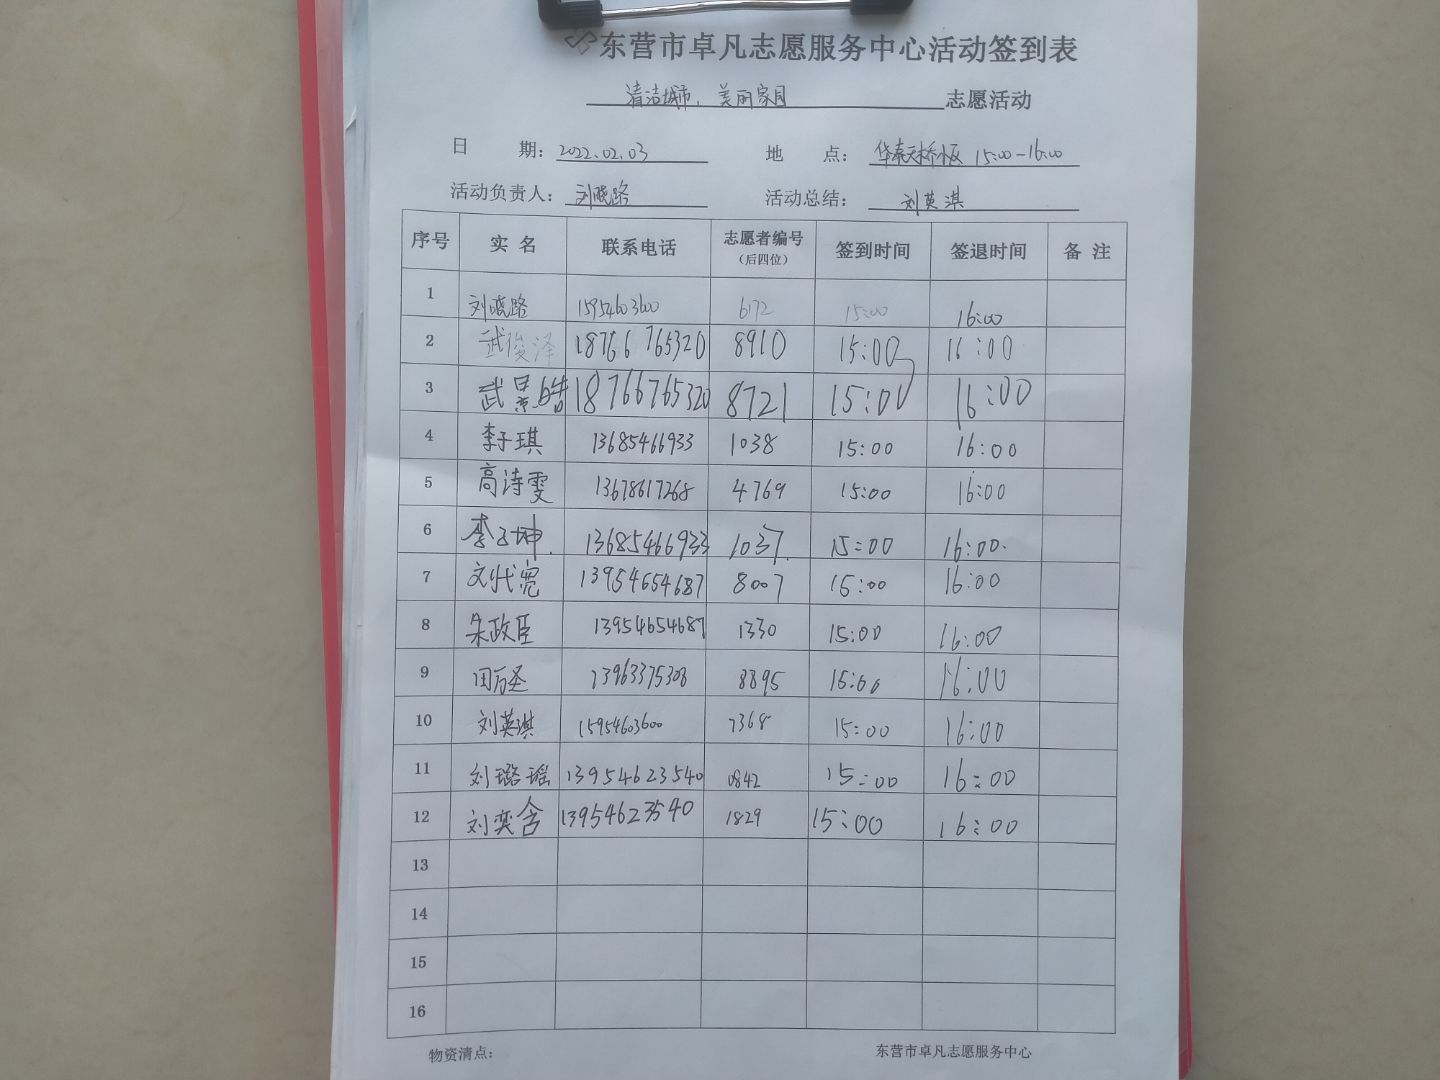 东营市卓凡志愿服务中心活动签到表
清洁城市、美丽家园 志愿活动
日 期: 2022.02.03 地 点: 华泰天桥 15:00-16:00
活动负责人: 刘晓路 活动总结: 刘英淇
序号 实 名 联系电话 志愿者编号 签到时间 签退时间 备 注
(后四位)
1 刘晓路 15954603600 6172 15:00 16:00
2 武俊泽 18766765320 8910 15:00 16:00
3 武景皓 18766765320 8721 15:00 16:00
4 李子琪 13685466933 1038 15:00 16:00
5 高诗雯 13678617268 4769 15:00 16:00
6 李子坤. 13685466933 1037. 15:00 16:00.
7 刘代宽 13954654687 8007 15:00 16:00
8 朱政臣 13954654687 1330 15:00 16:00
9 田万圣 13963375308 8895 15:00 16:00
10 刘英淇 15954603600 7368 15:00 16:00
11 刘璐瑶 13954623540 0842 15:00 16:00
12 刘奕含 13954623540 1829 15:00 16:00
13
14
15
16
物资清点: 东营市卓凡志愿服务中心